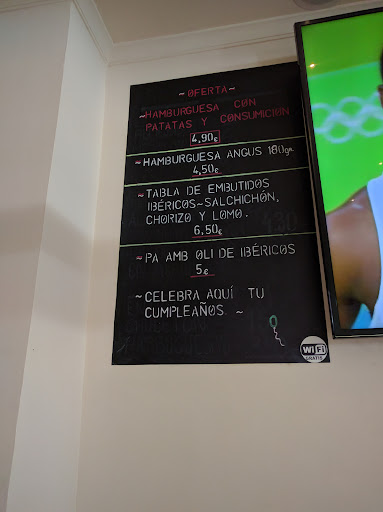 ~ OFERTA ~
~HAMBURGUESA CON
PATATAS Y CONSUMICIÓN
4,90€
~HAMBURGUESA ANGUS 180gr.
4,50€
~TABLA DE EMBUTIDOS
IBÉRICOS~SALCHICHÓN,
CHORIZO Y LOMO.
6,50€
~PA AMB OLI DE IBÉRICOS
5€
~CELEBRA AQUÍ TU
CUMPLEAÑOS. ~
WiFi
GRATIS